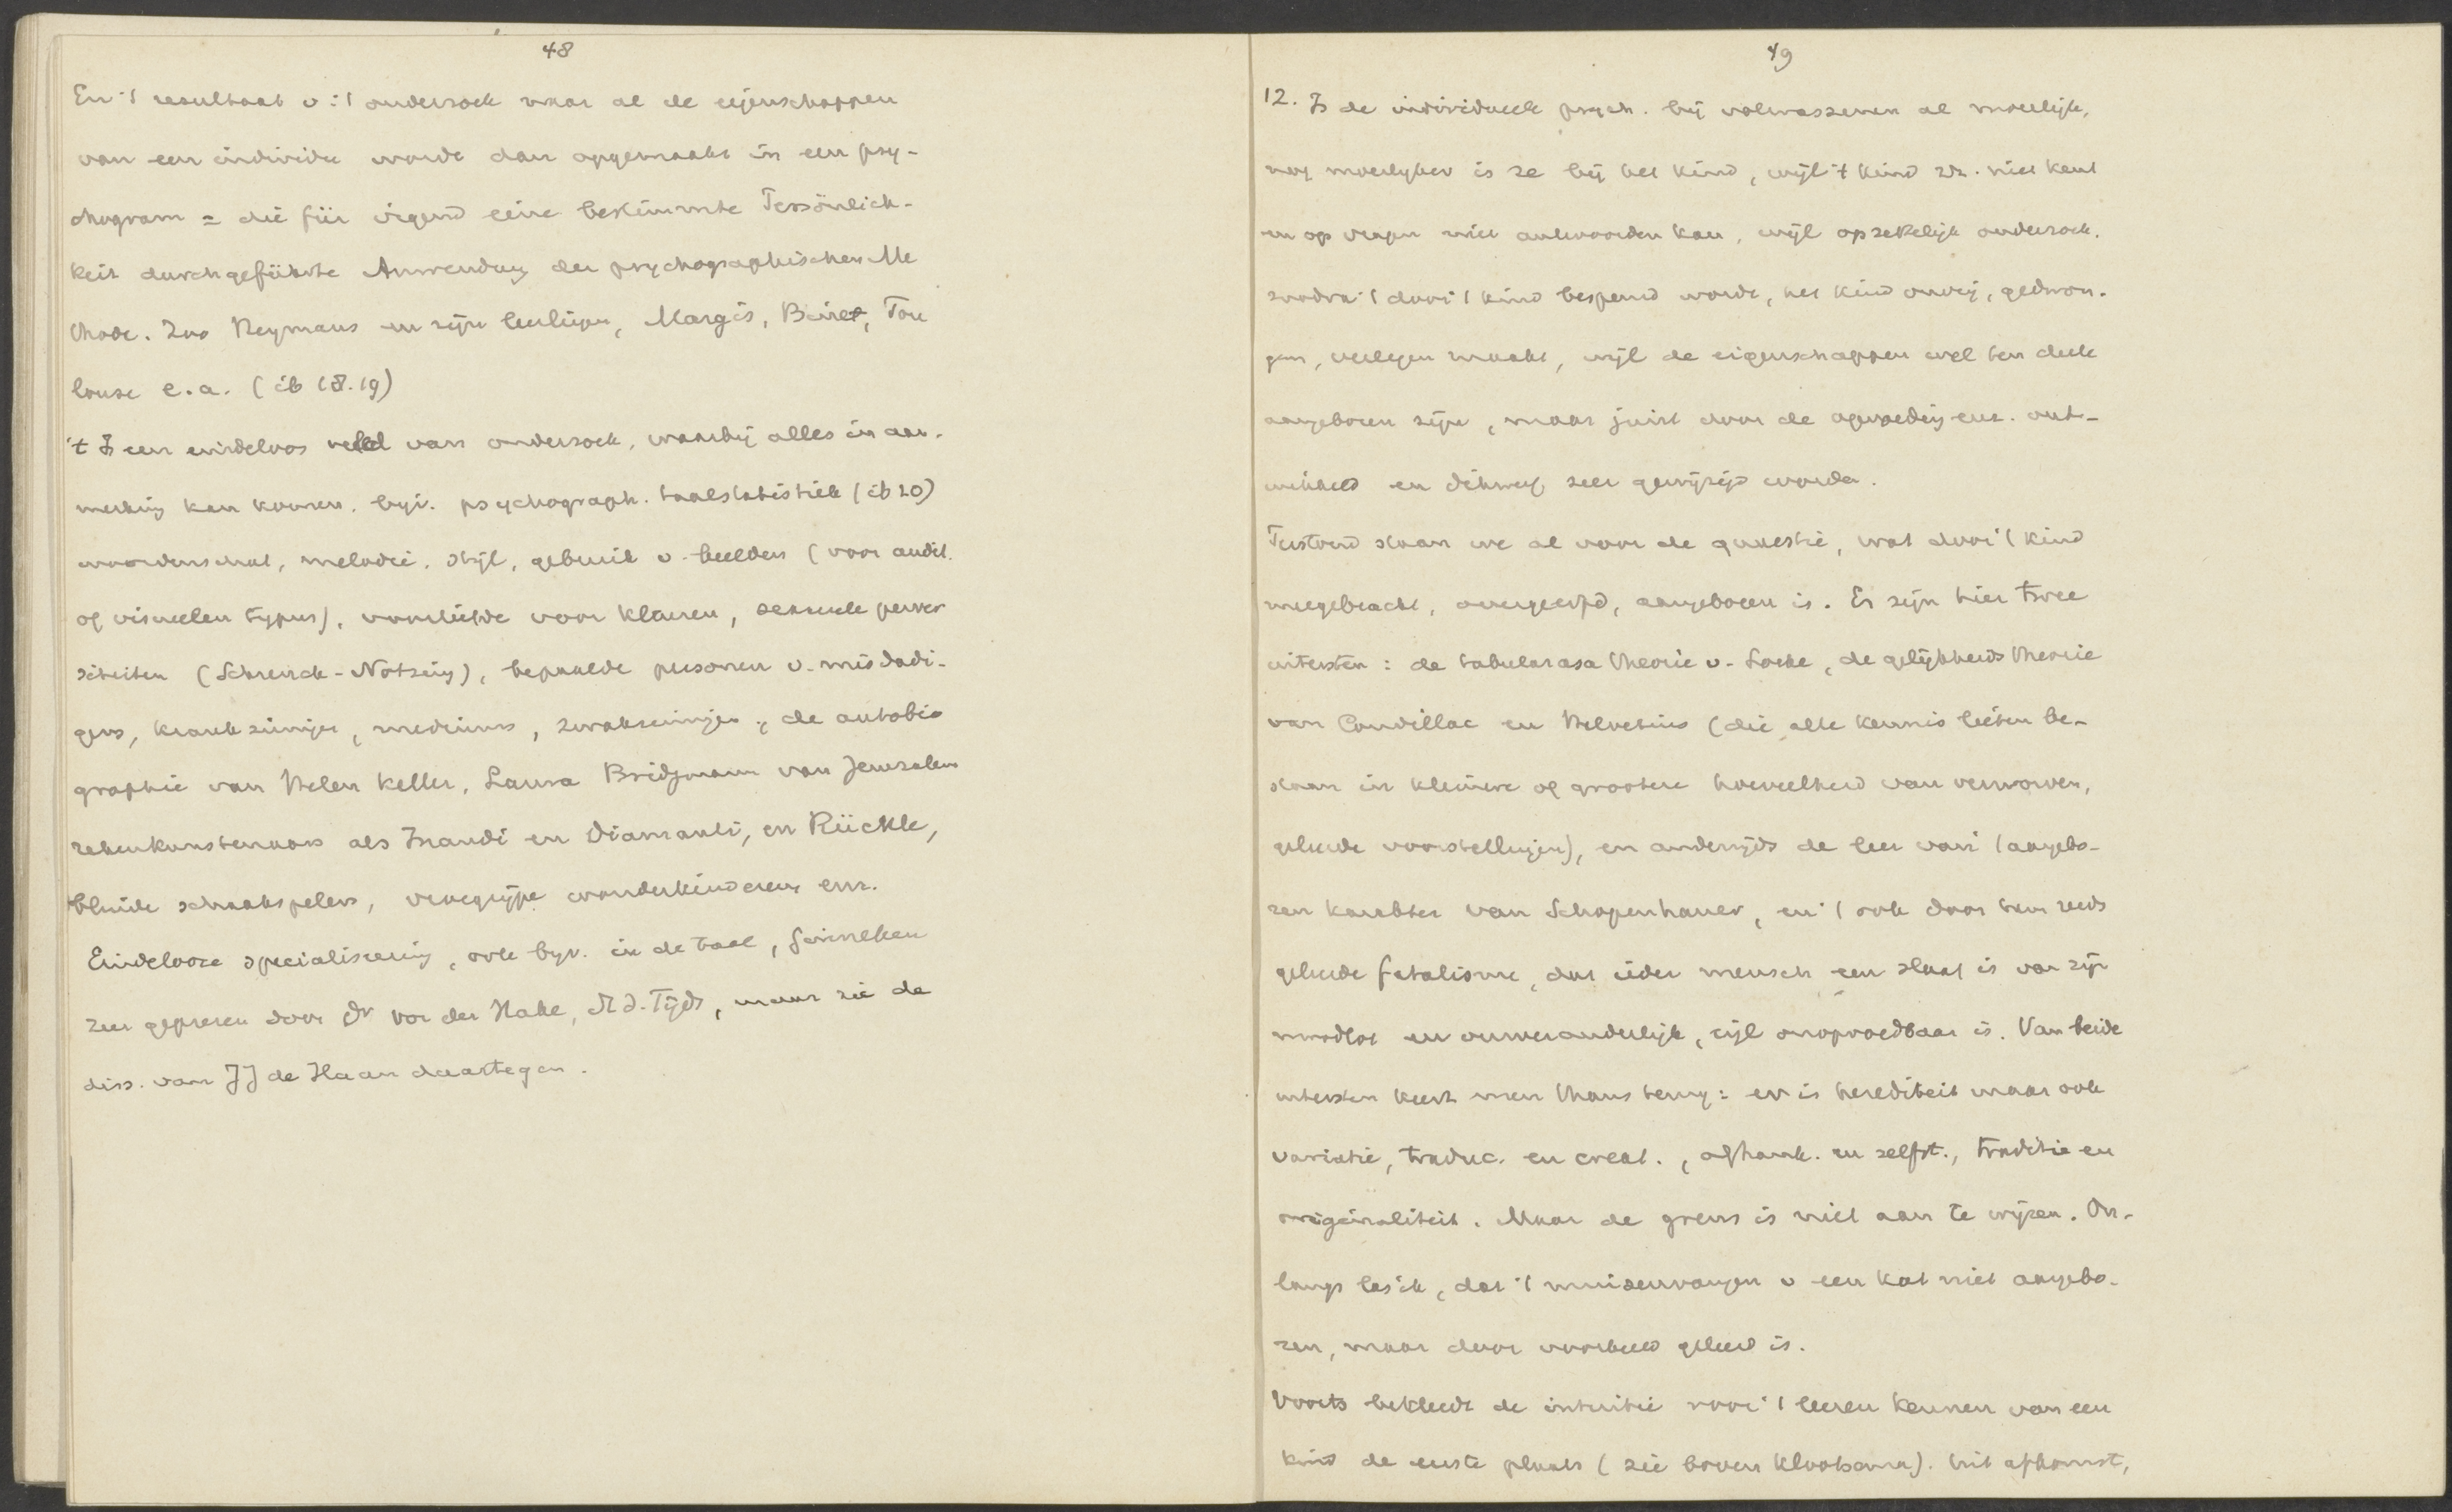 48
En 't resultaat v. 't onderzoek naar al de eigenschappen
van een individu worde dan opgemaakt in een psy-
chogram = die für irgend eine bestimmte Persönlich-
keit durchgeführte Anwendung der psychographischen Me
thode. Zoo Heymans en zijn leerlingen, Margis, Binet, Tou
louse e.a. (ib 18.19)
't Is een eindeloos veld van onderzoek, waarbij alles in aan-
merking kan komen. bijv. psychograph. taalstatistiek (ib 20)
woordenschat, melodie, stijl, gebruik v. beelden (voor audit.
of visueelen typus), voorliefde voor kleuren, sexueele perver
siteiten (Schrenck-Notzing), bepaalde personen v. misdadi-
gers, krankzinnigen, mediums, zwakzinnigen, de autobio
graphie van Helen Keller, Laura Bridgmann van Jerusalem
rekenkunstenaars als Inaudi en Diamanti, en Rückle,
blinde schaakspelers, vroegrijpe wonderkinderen enz.
Eindelooze specialiseering, ook bijv. in de taal, Ginneken
zeer geprezen door Dr von der Hake, N.d. Tijds, maar zie de
diss. van JJ de Haan daartegen.
49
12. Is de individueele psych. bij volwassenen al moeilijk,
nog moeilijker is ze bij het kind, wijl 't kind zn. niet kent
en op vragen niet antwoorden kan, wijl opzettelijk onderzoek.
zoodra 't door 't kind bespeurd wordt, het kind onvrij, gedwon-
gen, verlegen maakt, wijl de eigenschappen wel ten deele
aangeboren zijn, maar juist door de opvoeding enz. ont-
wikkeld en dikwijls zeer gewijzigd worden.
Terstond staan we al voor de quaestie, wat door 't kind
meegebracht, overgeerfd, aangeboren is. Er zijn hier twee
uitersten: de tabula rasa theorie v. Locke, de gelijkheids theorie
van Condillac en Helvetius (die alle kennis lieten be-
staan in kleinere of grootere hoeveelheid van verworven,
geleerde voorstellingen), en anderzijds de leer van 't aangebo-
ren karakter van Schopenhauer, en 't ook door hem reeds
geleerde fatalisme, dat ieder mensch een slaaf is van zijn
noodlot en onveranderlijk, wijl onopvoedbaar is. Van beide
uitersten keert men thans terug: er is herediteit maar ook
variatie, traduc. en creat., afhank. en zelfst., traditie en
origineliteit. Maar de grens is niet aan te wijzen. On-
langs las ik, dat 't muizenvangen v een kat niet aangebo-
ren, maar door voorbeeld geleerd is.
Voorts bekleedt de intuitie voor 't leeren kennen van een
kind de eerste plaats (zie boven Klootsema). Uit afkomst,